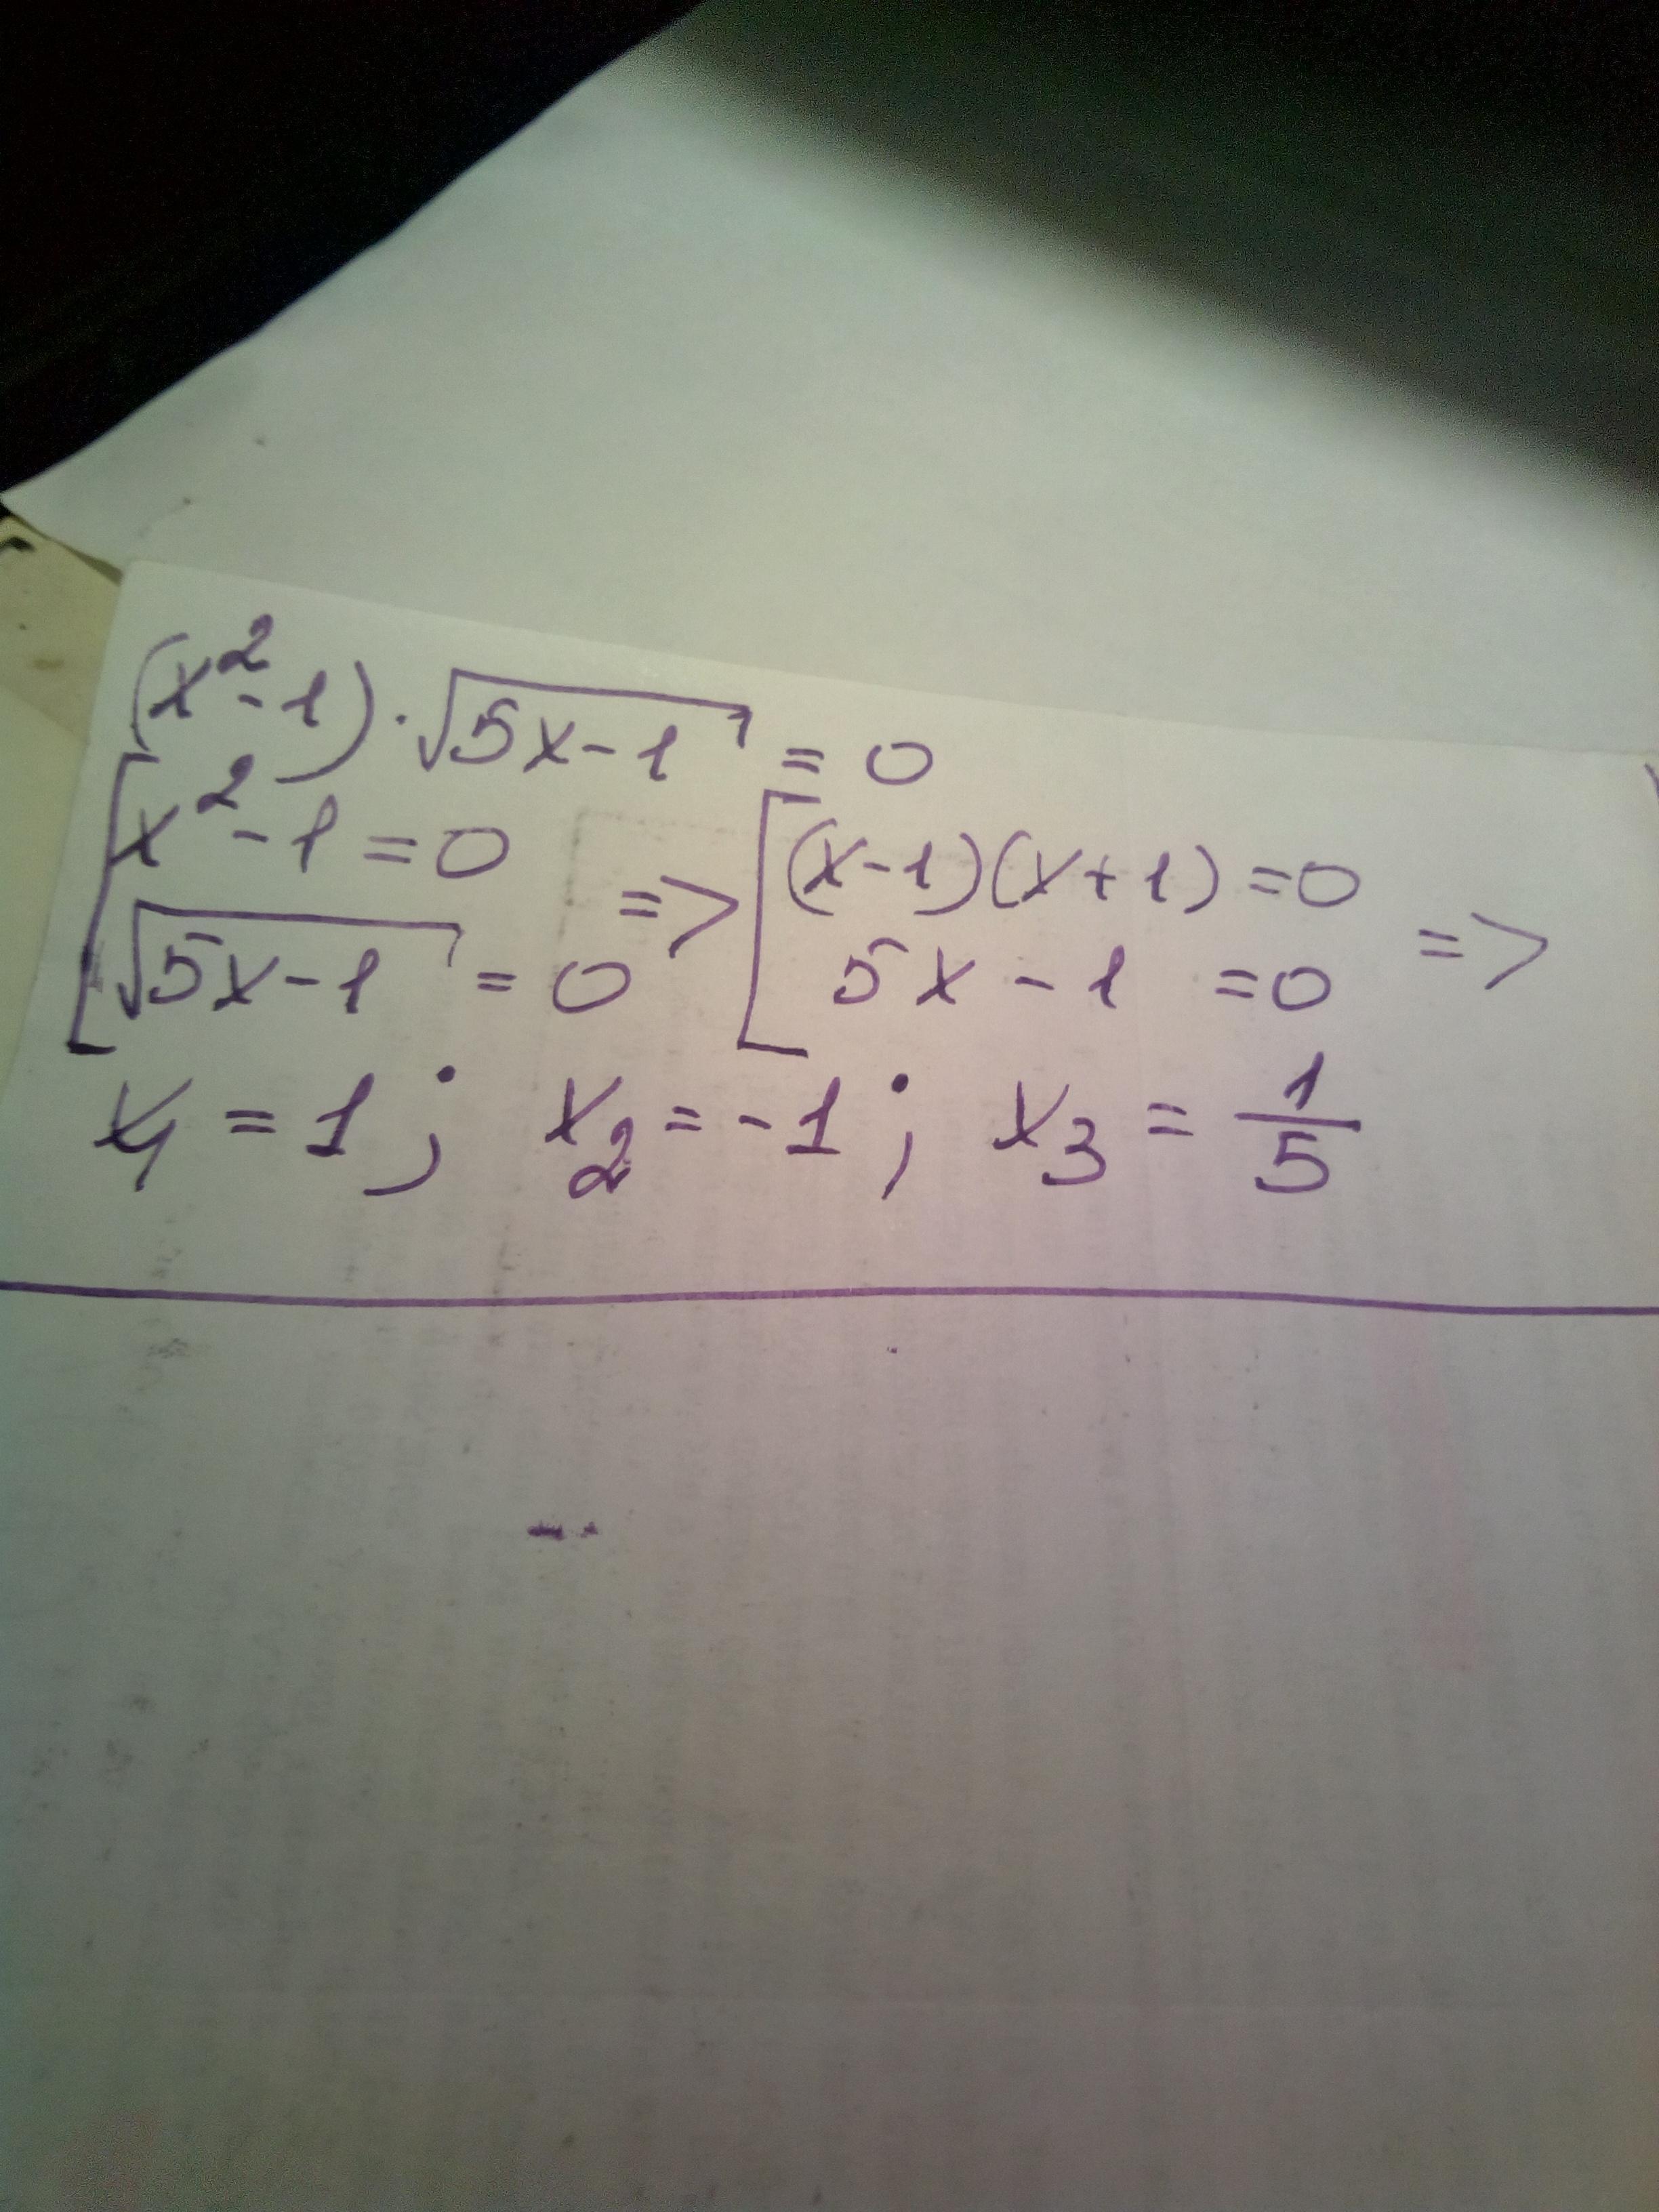 (x²-1)·√(5x-1) = 0
[x²-1=0 => [(x-1)(x+1)=0 =>
√(5x-1) = 0 5x-1 =0
x₁ = 1; x₂=-1; x₃ = 1/5